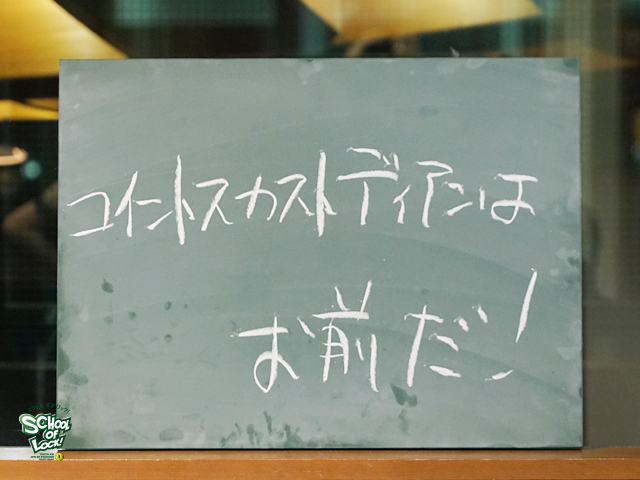 コイントスカストディアンは
お前だ!
SCHOOL
OF
LOCK!